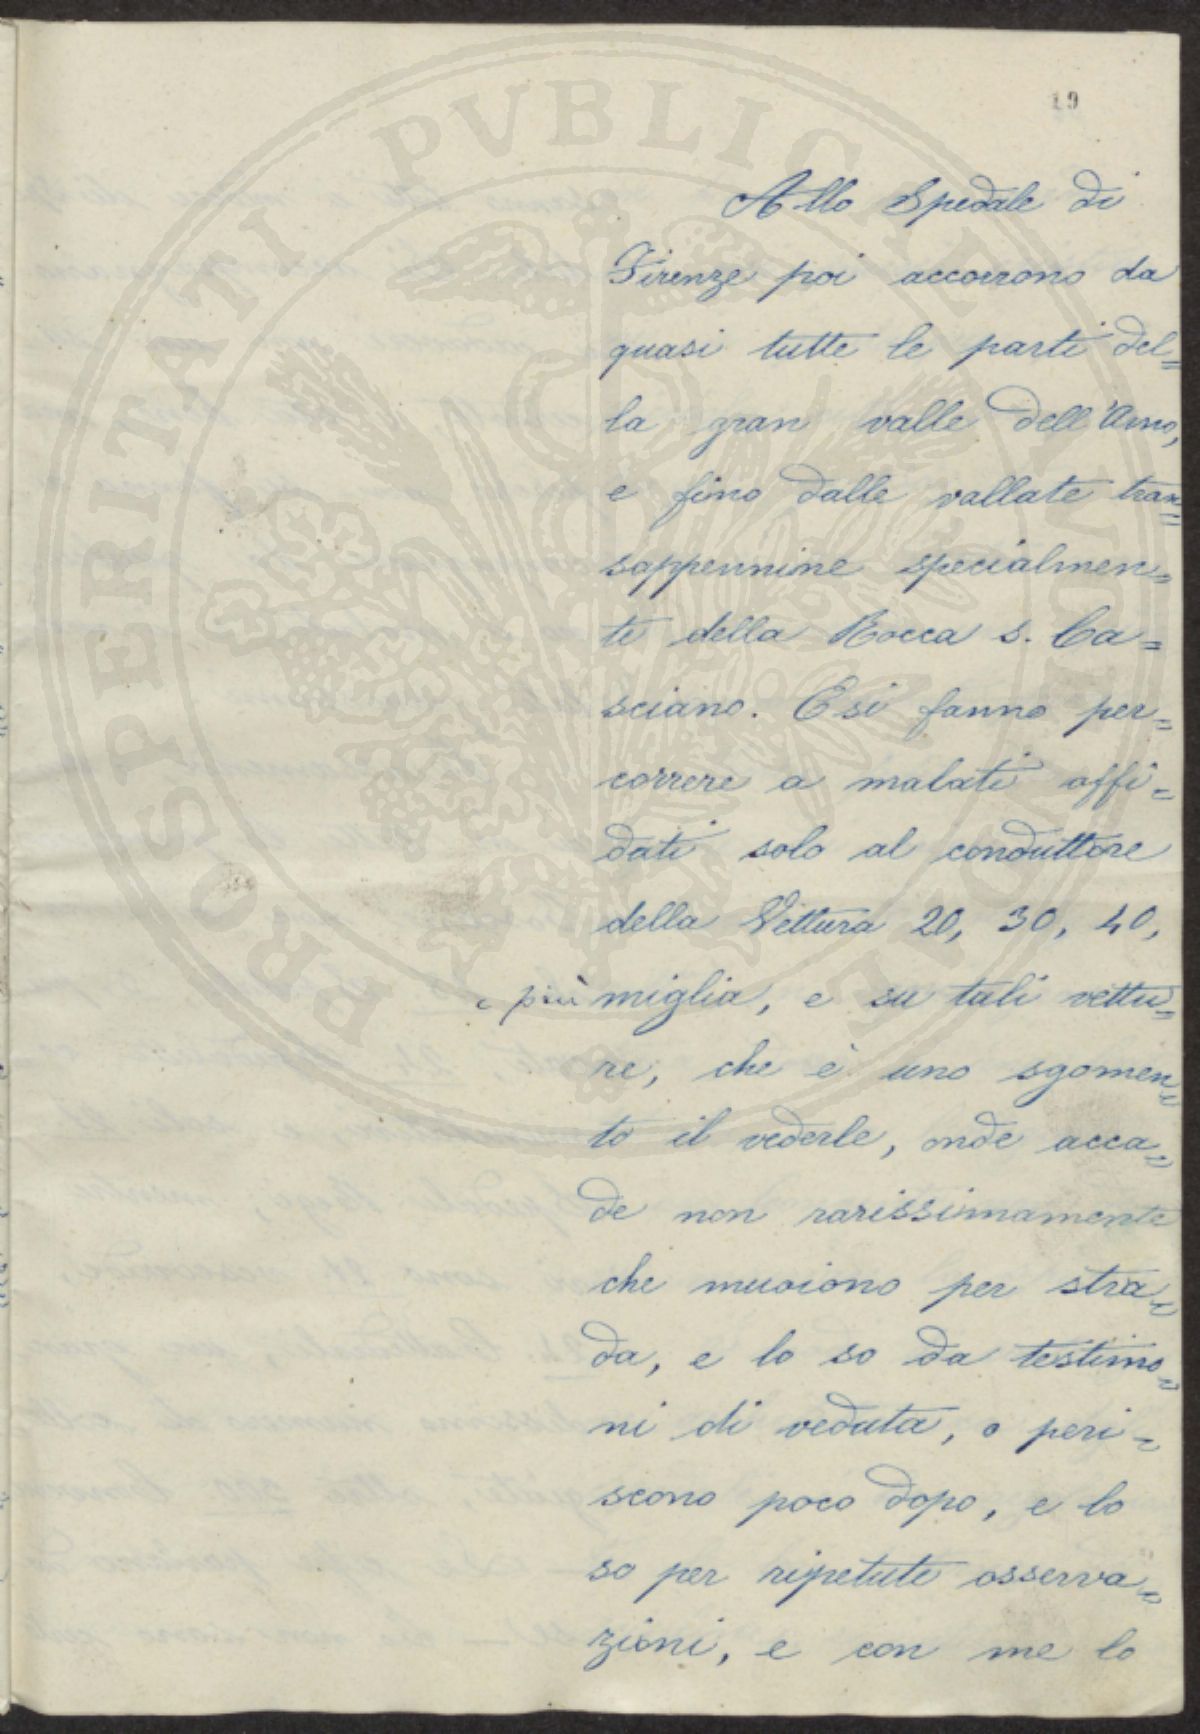 19
Allo Spedale di
Firenze poi accorrono da
quasi tutte le parti del=
la gran valle dell'Arno,
e fino dalle vallate tran=
sappennine specialmen=
te della Rocca S. Ca=
sciano. E si fanno per=
correre a malati affi=
dati solo al conduttore
della Vettura 20, 30, 40,
e più miglia, e su tali vettu=
re, che è uno sgomen=
to il vederle, onde acca=
de non rarissimamente
che muoiono per stra=
da, e lo so da testimo=
ni di veduta, o peri=
scono poco dopo, e lo
so per ripetute osserva=
zioni, e con me lo
PROSPERITATI PVBLICAE